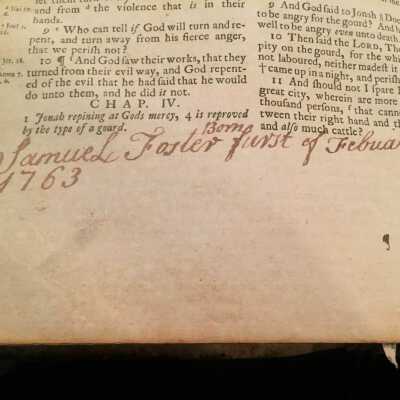 and from ᵈ the violence that is in their
hands.
9 ᵉ Who can tell if God will turn and re-
pent, and turn away from his fierce anger,
that we perish not?
10 ¶ ᶠ And God saw their works, that they
turned from their evil way, and God repent-
ed of the evil that he had said that he would
do unto them, and he did it not.
CHAP. IV.
1 Jonah repining at Gods mercy, 4 is reproved
by the type of a gourd.
9 And God said to Jonah
to be angry for the gourd? And
well to be angry even unto death.
10 Then said the LORD, Th
pity on the gourd, for the wh
not laboured, neither madest it
† came up in a night, and perish
11 And should not I spare
great city, wherein are more
thousand persons, ᶠ that canno
tween their right hand and th
and also much cattle?
Samuel Foster Born furst of Febua
1763